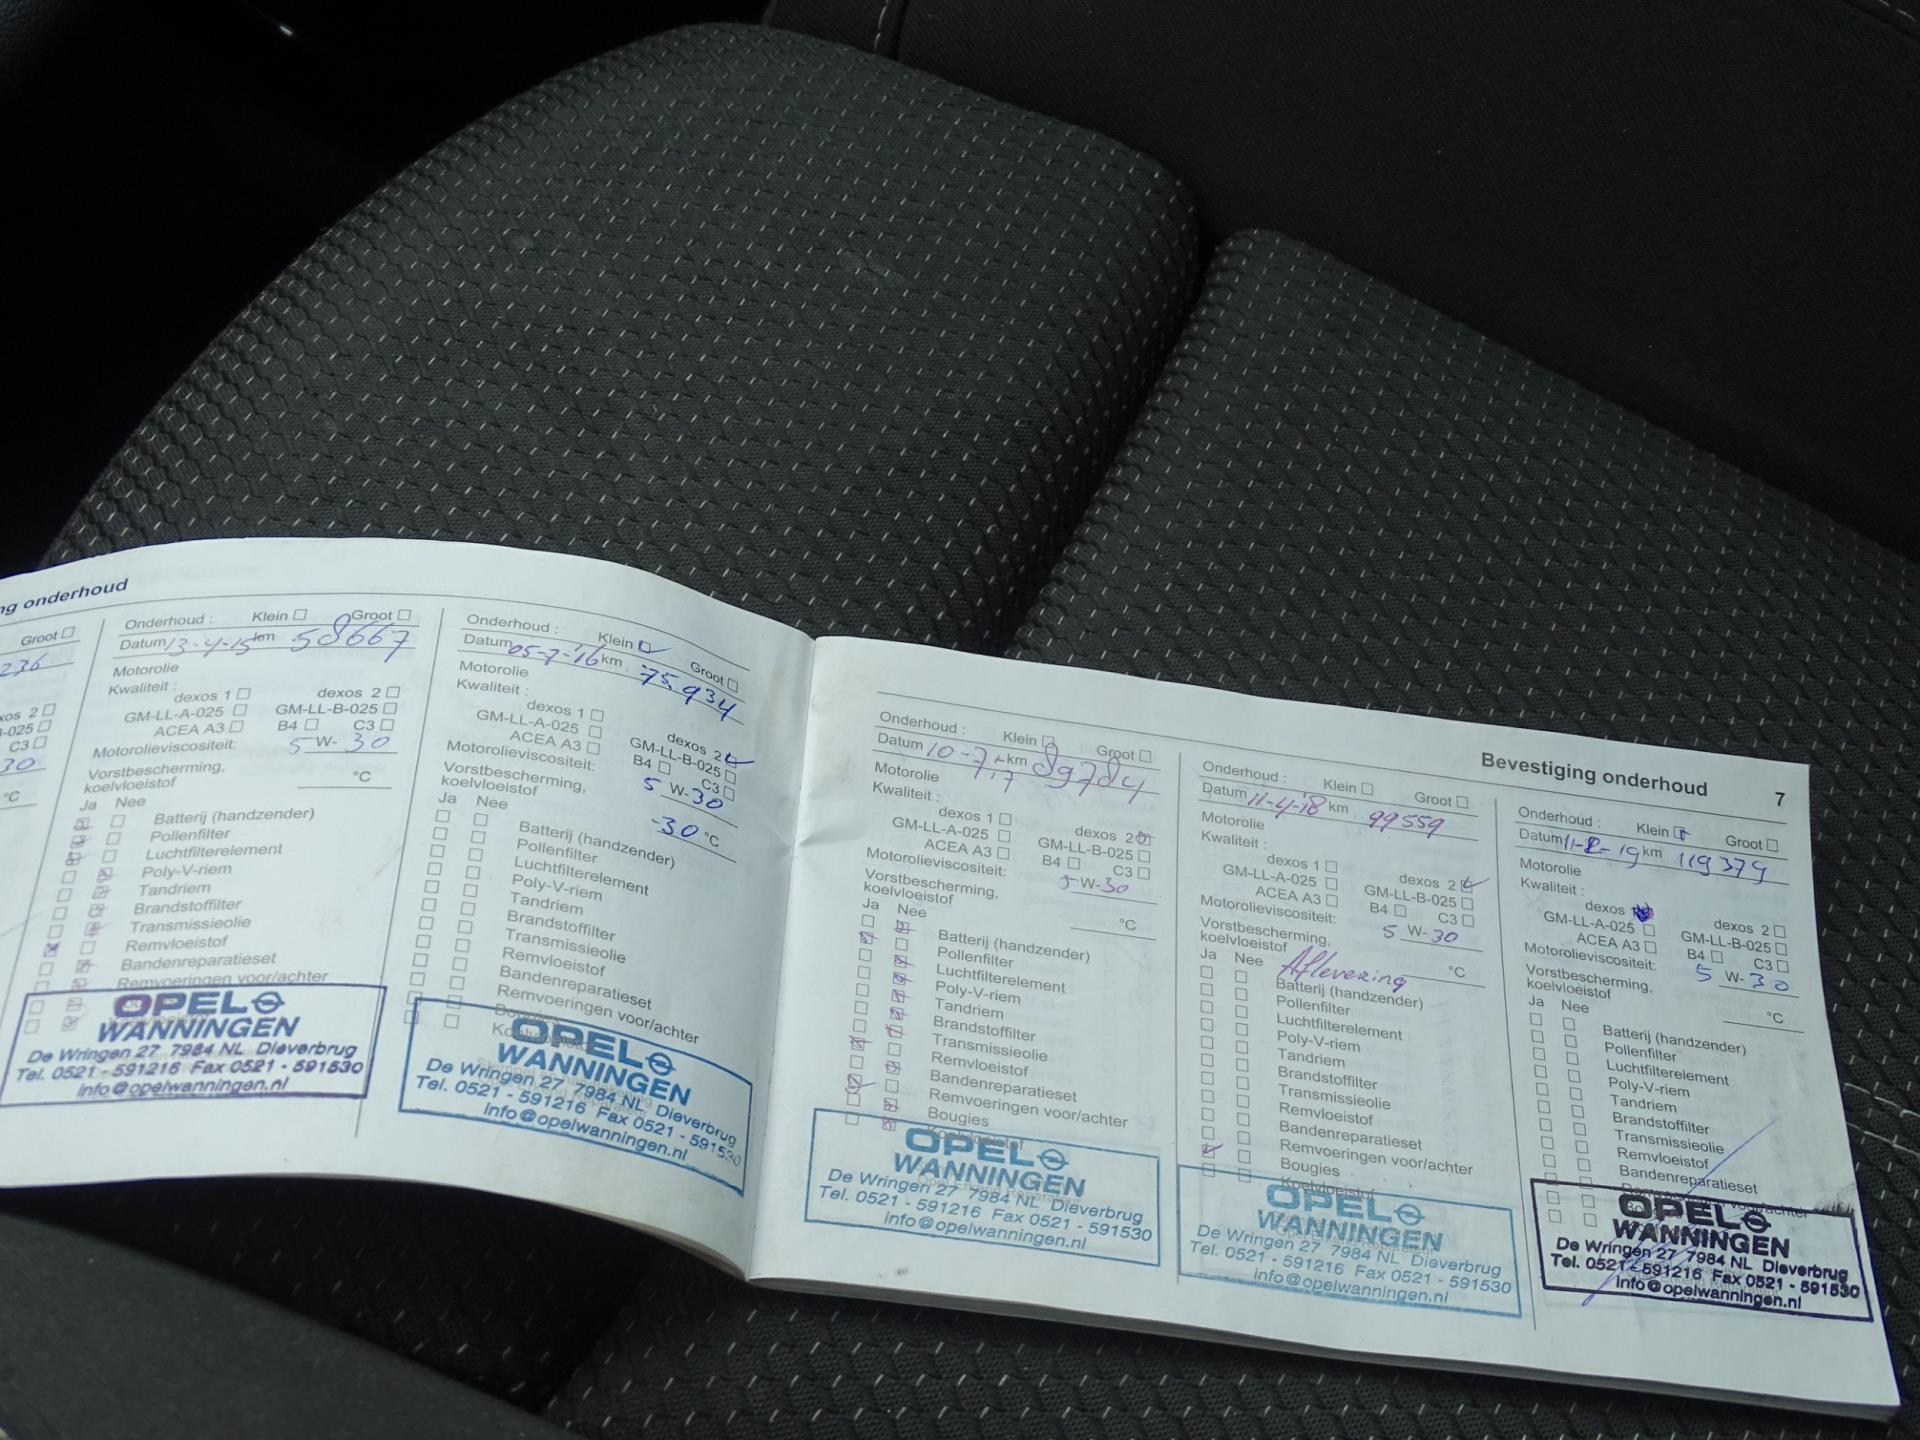 ng onderhoud
Groot
236
xos 2
-025
C3
30
°C
Onderhoud : Klein Groot
Datum 13-4-15 km 58667
Motorolie
Kwaliteit :
dexos 1 dexos 2
GM-LL-A-025 GM-LL-B-025
ACEA A3 B4 C3
Motorolieviscositeit: 5 W- 30
Vorstbescherming,
koelvloeistof °C
Ja Nee
Batterij (handzender)
Pollenfilter
Luchtfilterelement
Poly-V-riem
Tandriem
Brandstoffilter
Transmissieolie
Remvloeistof
Bandenreparatieset
Remvoeringen voor/achter
OPEL
WANNINGEN
De Wringen 27 7984 NL Dieverbrug
Tel. 0521 - 591216 Fax 0521 - 591530
info@opelwanningen.nl
Onderhoud : Klein Groot
Datum 05-7-'16 km 75.934
Motorolie
Kwaliteit :
dexos 1 dexos 2
GM-LL-A-025 GM-LL-B-025
ACEA A3 B4 C3
Motorolieviscositeit: 5 W- 30
Vorstbescherming,
koelvloeistof -30 °C
Ja Nee
Batterij (handzender)
Pollenfilter
Luchtfilterelement
Poly-V-riem
Tandriem
Brandstoffilter
Transmissieolie
Remvloeistof
Bandenreparatieset
Remvoeringen voor/achter
Bougies
Koelvloeistof
OPEL
WANNINGEN
De Wringen 27 7984 NL Dieverbrug
Tel. 0521 - 591216 Fax 0521 - 591530
info@opelwanningen.nl
Bevestiging onderhoud 7
Onderhoud : Klein Groot
Datum 10-7-17 km 89784
Motorolie
Kwaliteit :
dexos 1 dexos 2
GM-LL-A-025 GM-LL-B-025
ACEA A3 B4 C3
Motorolieviscositeit: 5 W- 30
Vorstbescherming,
koelvloeistof °C
Ja Nee
Batterij (handzender)
Pollenfilter
Luchtfilterelement
Poly-V-riem
Tandriem
Brandstoffilter
Transmissieolie
Remvloeistof
Bandenreparatieset
Remvoeringen voor/achter
Bougies
Koelvloeistof
OPEL
WANNINGEN
De Wringen 27 7984 NL Dieverbrug
Tel. 0521 - 591216 Fax 0521 - 591530
info@opelwanningen.nl
Onderhoud : Klein Groot
Datum 11-4-'18 km 99559
Motorolie
Kwaliteit :
dexos 1 dexos 2
GM-LL-A-025 GM-LL-B-025
ACEA A3 B4 C3
Motorolieviscositeit: 5 W- 30
Vorstbescherming,
koelvloeistof °C
Ja Nee Aflevering
Batterij (handzender)
Pollenfilter
Luchtfilterelement
Poly-V-riem
Tandriem
Brandstoffilter
Transmissieolie
Remvloeistof
Bandenreparatieset
Remvoeringen voor/achter
Bougies
Koelvloeistof
OPEL
WANNINGEN
De Wringen 27 7984 NL Dieverbrug
Tel. 0521 - 591216 Fax 0521 - 591530
info@opelwanningen.nl
Onderhoud : Klein Groot
Datum 11-2-19 km 119379
Motorolie
Kwaliteit :
dexos dexos 2
GM-LL-A-025 GM-LL-B-025
ACEA A3 B4 C3
Motorolieviscositeit: 5 W- 30
Vorstbescherming,
koelvloeistof °C
Ja Nee
Batterij (handzender)
Pollenfilter
Luchtfilterelement
Poly-V-riem
Tandriem
Brandstoffilter
Transmissieolie
Remvloeistof
Bandenreparatieset
OPEL
WANNINGEN
De Wringen 27 7984 NL Dieverbrug
Tel. 0521 - 591216 Fax 0521 - 591530
info@opelwanningen.nl